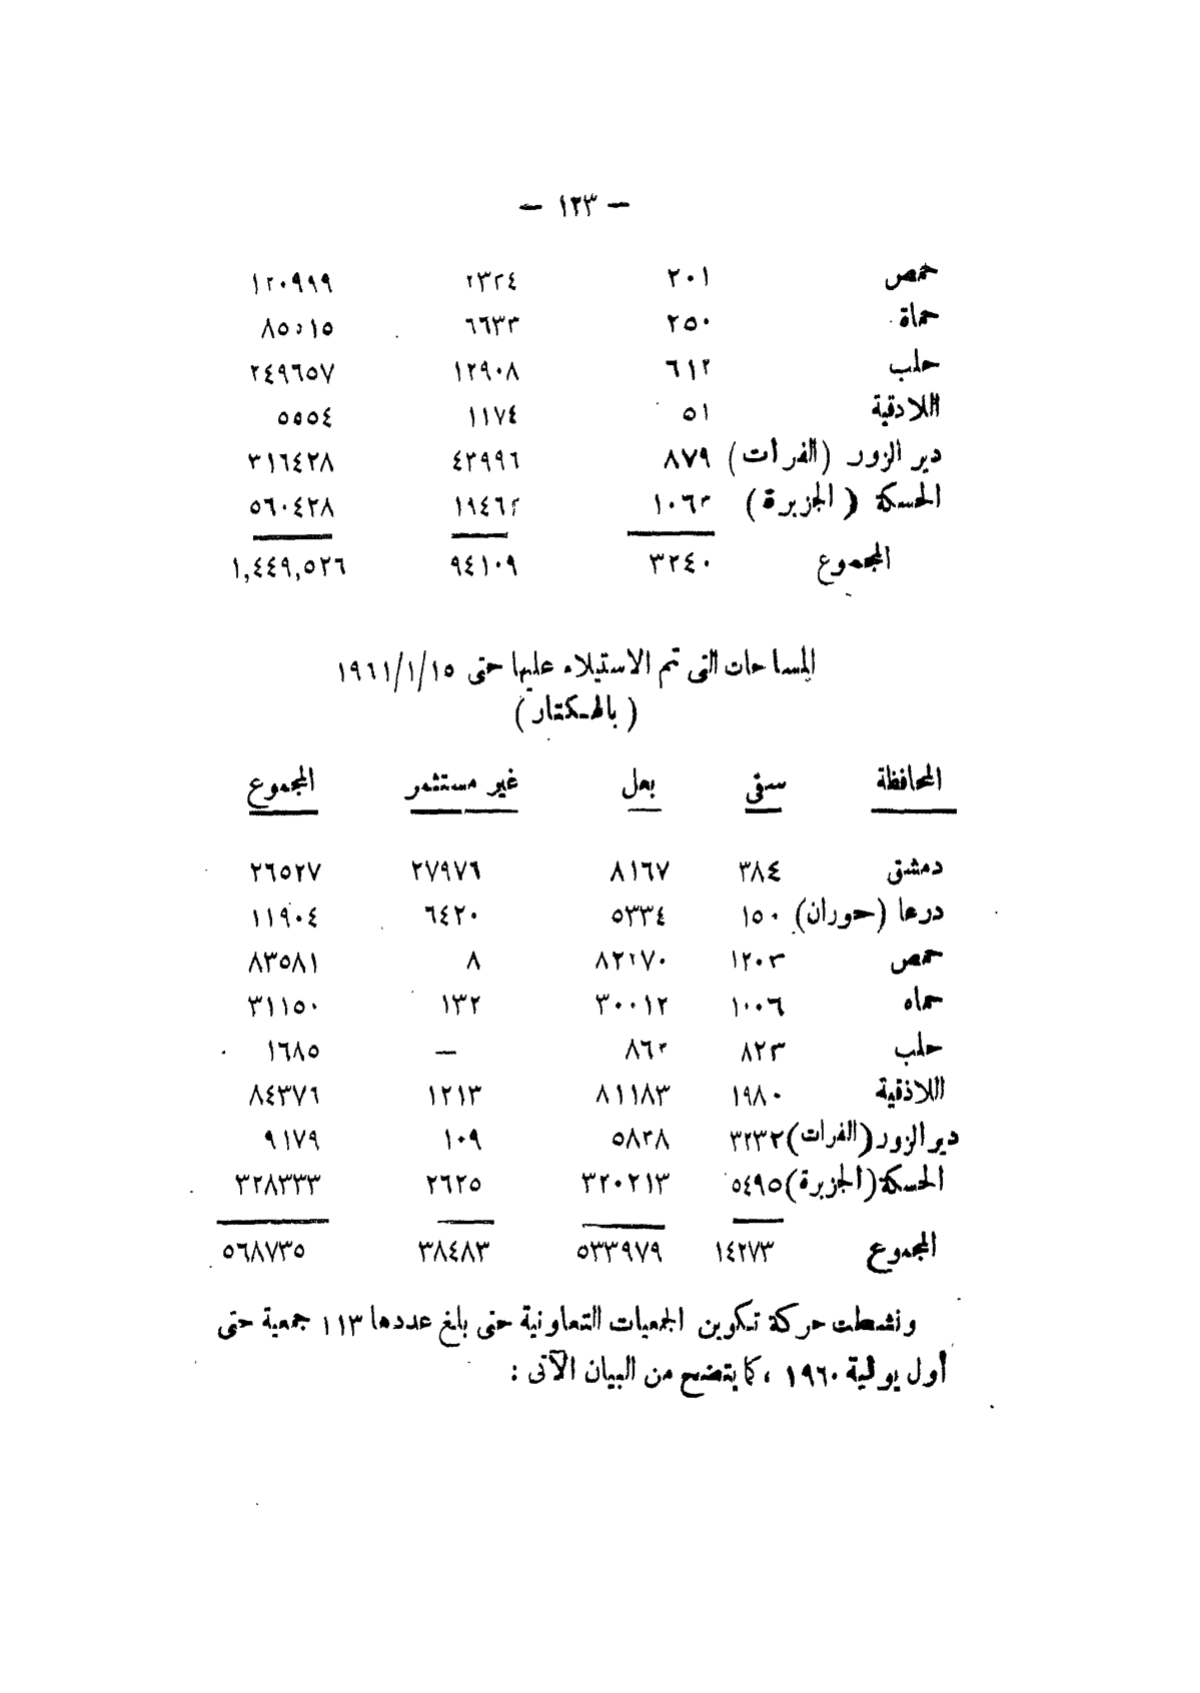 — ١٢٣ —
حمص ٢٠١ ٢٣٢٤ ١٢٠٩٩٩
حماة ٢٥٠ ٦٦٣٣ ٨٥٠١٥
حلب ٦١٢ ١٢٩٠٨ ٢٤٩٦٥٧
اللادقية ٥١ ١١٧٤ ٥٥٥٤
دير الزور (الفرات) ٨٧٩ ٤٢٩٩٦ ٣١٦٤٢٨
الحسكة (الجزيرة) ١٠٦٣ ١٩٤٦٢ ٥٦٠٤٢٨
المجموع ٣٢٤٠ ٩٤١٠٩ ١,٤٤٩,٥٢٦
المساحات التى تم الاستيلاء عليها حتى ١٩٦١/١/١٥
(بالهكتار)
المحافظة سقى بعل غير مستثمر المجموع
دمشق ٣٨٤ ٨١٦٧ ٢٧٩٧٦ ٢٦٥٢٧
درعا (حوران) ١٥٠ ٥٣٣٤ ٦٤٢٠ ١١٩٠٤
حمص ١٢٠٣ ٨٢٣٧٠ ٨ ٨٣٥٨١
حماه ١٠٠٦ ٣٠٠١٢ ١٣٢ ٣١١٥٠
حلب ٨٢٣ ٨٦٢ — ١٦٨٥
اللاذقية ١٩٨٠ ٨١١٨٣ ١٢١٣ ٨٤٣٧٦
دير الزور (الفرات) ٣٢٣٢ ٥٨٣٨ ١٠٩ ٩١٧٩
الحسكة (الجزيرة) ٥٤٩٥ ٣٢٠٢١٣ ٢٦٢٥ ٣٢٨٣٣٣
المجموع ١٤٢٧٣ ٥٣٣٩٧٩ ٣٨٤٨٣ ٥٦٨٧٣٥
ونشطت حركة تكوين الجمعيات التعاونية حتى بلغ عددها ١١٣ جمعية حتى
أول يولية ١٩٦٠ ، كما يتضح من البيان الآتى :